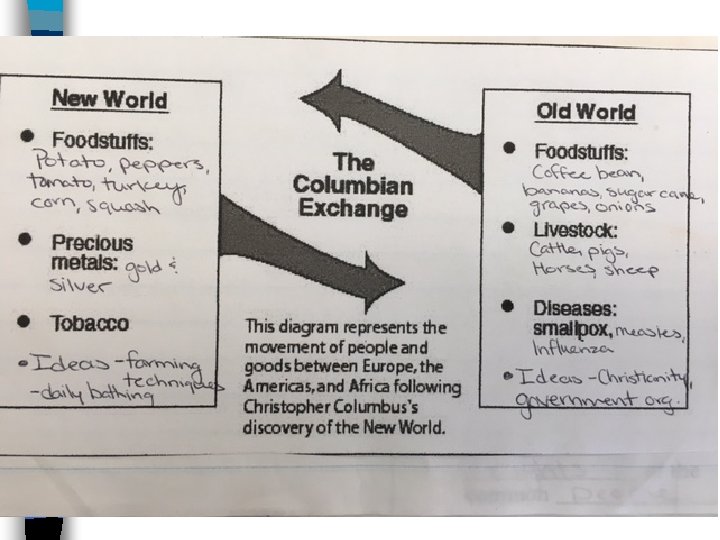 New World
• Foodstuffs:
Potato, peppers,
tomato, turkey,
corn, squash
• Precious
metals: gold &
silver
• Tobacco
• Ideas - farming
techniques
- daily bathing
The
Columbian
Exchange
This diagram represents the
movement of people and
goods between Europe, the
Americas, and Africa following
Christopher Columbus's
discovery of the New World.
Old World
• Foodstuffs:
Coffee bean,
bananas, sugar cane,
grapes, onions
• Livestock:
Cattle, pigs,
Horses, sheep
• Diseases:
smallpox, measles,
Influenza
• Ideas - Christianity,
government org.